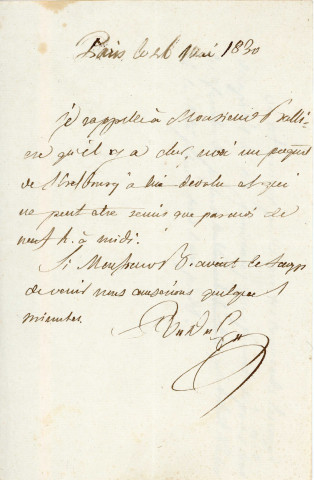 Paris le 26 Mai 1830
je rappelle à Monsieur Balli
ere qu'il y a chez moi un paquet
de Strasbourg à lui dévolu et qui
ne peut être remis que par moi de
neuf h. à midi.
Si Monsieur B. avait le temps
de venir nous causerions quelques
minutes.